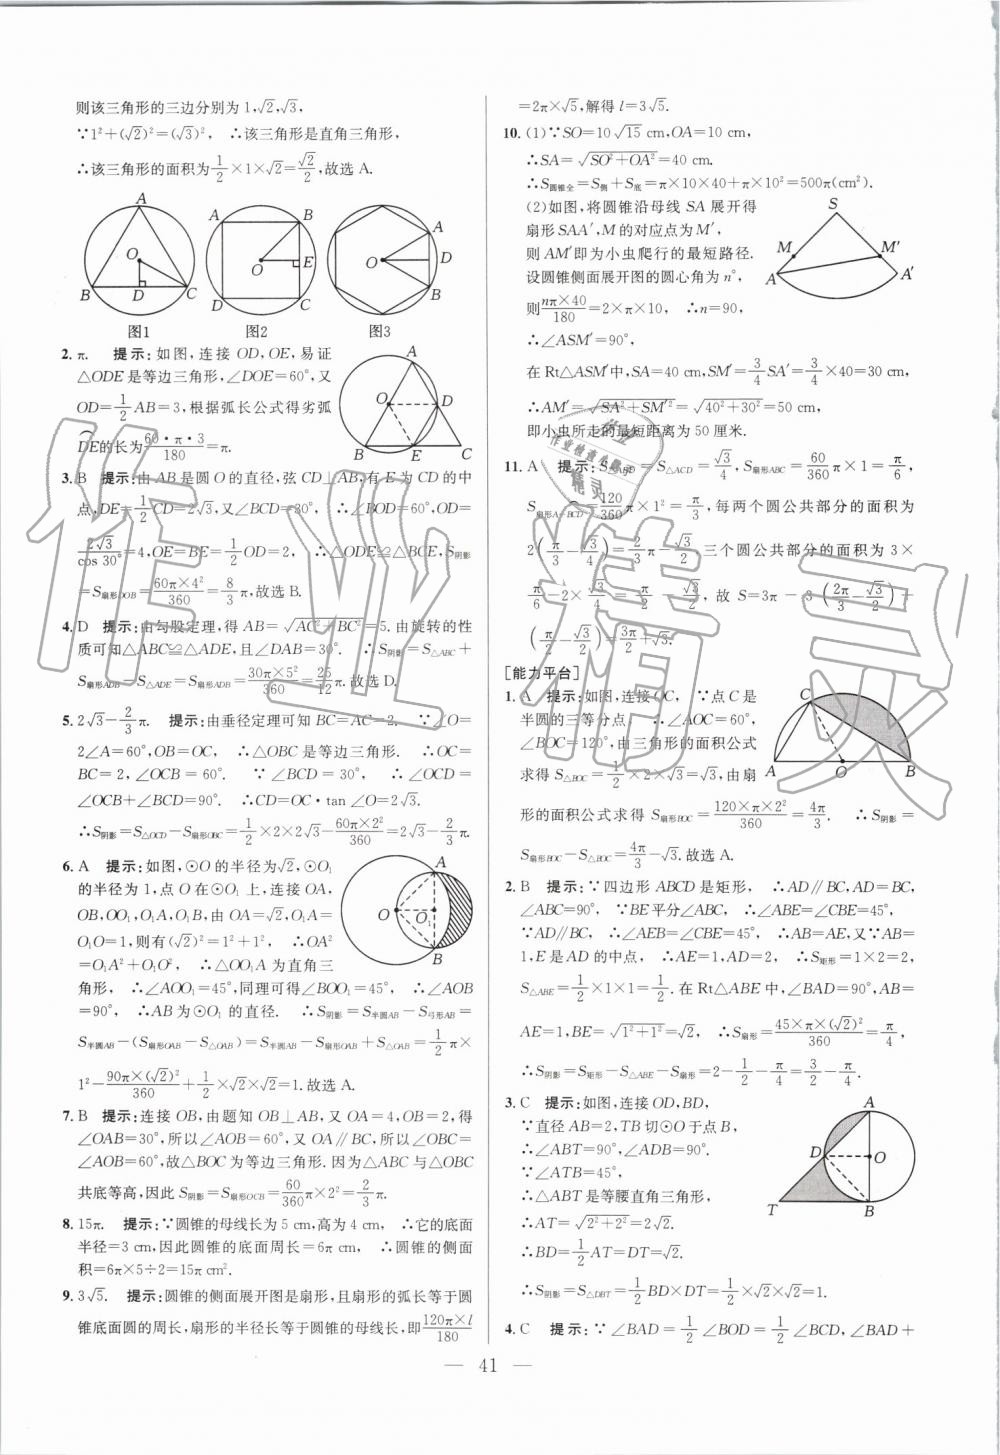 则该三角形的三边分别为 1,√2,√3,
∵1²+(√2)²=(√3)², ∴该三角形是直角三角形,
∴该三角形的面积为1/2×1×√2=√2/2,故选 A.
A
O
B D C
图1
A B
O E
D C
图2
A
O D
B
图3
2. π. 提示:如图,连接 OD,OE,易证
△ODE 是等边三角形,∠DOE=60°,又
OD=1/2AB=3,根据弧长公式得劣弧
DE的长为60·π·3/180=π.
A
O D
B E C
3. B 提示:由 AB 是圆 O 的直径,弦 CD⊥AB,有 E 为 CD 的中
点,DE=1/2CD=2√3,又∠BCD=30°, ∴∠BOD=60°,OD=
2√3/cos 30°=4,OE=BE=1/2OD=2, ∴△ODE≌△BCE,S阴影
=S扇形DOB=60π×4²/360=8/3π,故选 B.
4. D 提示:由勾股定理,得 AB=√AC²+BC²=5.由旋转的性
质可知△ABC≌△ADE,且∠DAB=30° ∴S阴影=S△ABC+
S扇形ADB-S△ADE=S扇形ADB=30π×5²/360=25/12π.故选 D.
5. 2√3-2/3π. 提示:由垂径定理可知 BC=AC=2. ∵∠O=
2∠A=60°,OB=OC, ∴△OBC 是等边三角形. ∴OC=
BC=2,∠OCB=60°. ∵∠BCD=30°, ∴∠OCD=
∠OCB+∠BCD=90°. ∴CD=OC·tan∠O=2√3.
∴S阴影=S△OCD-S扇形OBC=1/2×2×2√3-60π×2²/360=2√3-2/3π.
6. A 提示:如图,⊙O 的半径为√2,⊙O₁
的半径为 1,点 O 在⊙O₁ 上,连接 OA,
OB,OO₁,O₁A,O₁B,由 OA=√2,O₁A=
O₁O=1,则有(√2)²=1²+1² ∴OA²
=O₁A²+O₁O², ∴△OO₁A 为直角三
角形, ∴∠AOO₁=45°,同理可得∠BOO₁=45°, ∴∠AOB
=90°, ∴AB 为⊙O₁ 的直径. ∴S阴影=S半圆AB-S弓形AB=
S半圆AB-(S扇形OAB-S△OAB)=S半圆AB-S扇形OAB+S△OAB=1/2π×
1²-90π×(√2)²/360+1/2×√2×√2=1.故选 A.
A
O O₁
B
7. B 提示:连接 OB,由题知 OB⊥AB,又 OA=4,OB=2,得
∠OAB=30°,所以∠AOB=60°,又 OA∥BC,所以∠OBC=
∠AOB=60°,故△BOC 为等边三角形.因为△ABC 与△OBC
共底等高,因此 S阴影=S扇形OCB=60/360π×2²=2/3π.
8. 15π. 提示:∵圆锥的母线长为 5 cm,高为 4 cm, ∴它的底面
半径=3 cm,因此圆锥的底面周长=6π cm, ∴圆锥的侧面
积=6π×5÷2=15π cm².
9. 3√5. 提示:圆锥的侧面展开图是扇形,且扇形的弧长等于圆
锥底面圆的周长,扇形的半径长等于圆锥的母线长,即120π×l/180
=2π×√5,解得 l=3√5.
10. (1)∵SO=10√15 cm,OA=10 cm,
∴SA=√SO²+OA²=40 cm.
∴S圆锥全=S侧+S底=π×10×40+π×10²=500π(cm²).
(2)如图,将圆锥沿母线 SA 展开得
扇形 SAA′,M 的对应点为 M′,
则 AM′即为小虫爬行的最短路径.
设圆锥侧面展开图的圆心角为 n°,
则nπ×40/180=2×π×10, ∴n=90,
∴∠ASM′=90°,
S
M M′
A A′
在 Rt△ASM′中,SA=40 cm,SM′=3/4SA′=3/4×40=30 cm,
∴AM′=√SA²+SM′²=√40²+30²=50 cm,
即小虫所走的最短距离为 50 厘米.
11. A 提示:S△ABD=S△ACD=√3/4,S扇形ABC=60/360π×1=π/6,
S扇形A-BCD=120/360π×1²=π/3,每两个圆公共部分的面积为
2(π/3-√3/4)=2π/3-√3/2,三个圆公共部分的面积为 3×
π/6-2×√3/4=π/2-√3/2,故 S=3π-3(2π/3-√3/2)+
(π/2-√3/2)=3π/2+√3.
[能力平台]
1. A 提示:如图,连接 OC, ∵点 C 是
半圆的三等分点, ∴∠AOC=60°,
∠BOC=120°,由三角形的面积公式
求得 S△BOC=1/2×2×√3=√3,由扇
形的面积公式求得 S扇形BOC=120×π×2²/360=4π/3. ∴S阴影=
S扇形BOC-S△BOC=4π/3-√3.故选 A.
C
A O B
2. B 提示:∵四边形 ABCD 是矩形, ∴AD∥BC,AD=BC,
∠ABC=90°, ∵BE平分∠ABC, ∴∠ABE=∠CBE=45°,
∵AD∥BC, ∴∠AEB=∠CBE=45°, ∴AB=AE,又∵AB=
1,E 是 AD 的中点, ∴AE=1,AD=2, ∴S矩形=1×2=2,
S△ABE=1/2×1×1=1/2.在 Rt△ABE 中,∠BAD=90°,AB=
AE=1,BE=√1²+1²=√2, ∴S扇形=45×π×(√2)²/360=π/4,
∴S阴影=S矩形-S△ABE-S扇形=2-1/2-π/4=3/2-π/4.
3. C 提示:如图,连接 OD,BD,
∵直径 AB=2,TB 切⊙O 于点 B,
∴∠ABT=90°,∠ADB=90°.
∵∠ATB=45°,
∴△ABT 是等腰直角三角形,
∴AT=√2²+2²=2√2.
∴BD=1/2AT=DT=√2.
∴S阴影=S△DBT=1/2BD×DT=1/2×√2×√2=1.
A
D O
T B
4. C 提示:∵∠BAD=1/2∠BOD=1/2∠BCD,∠BAD+
— 41 —
作业精灵
作业检查生器
精灵